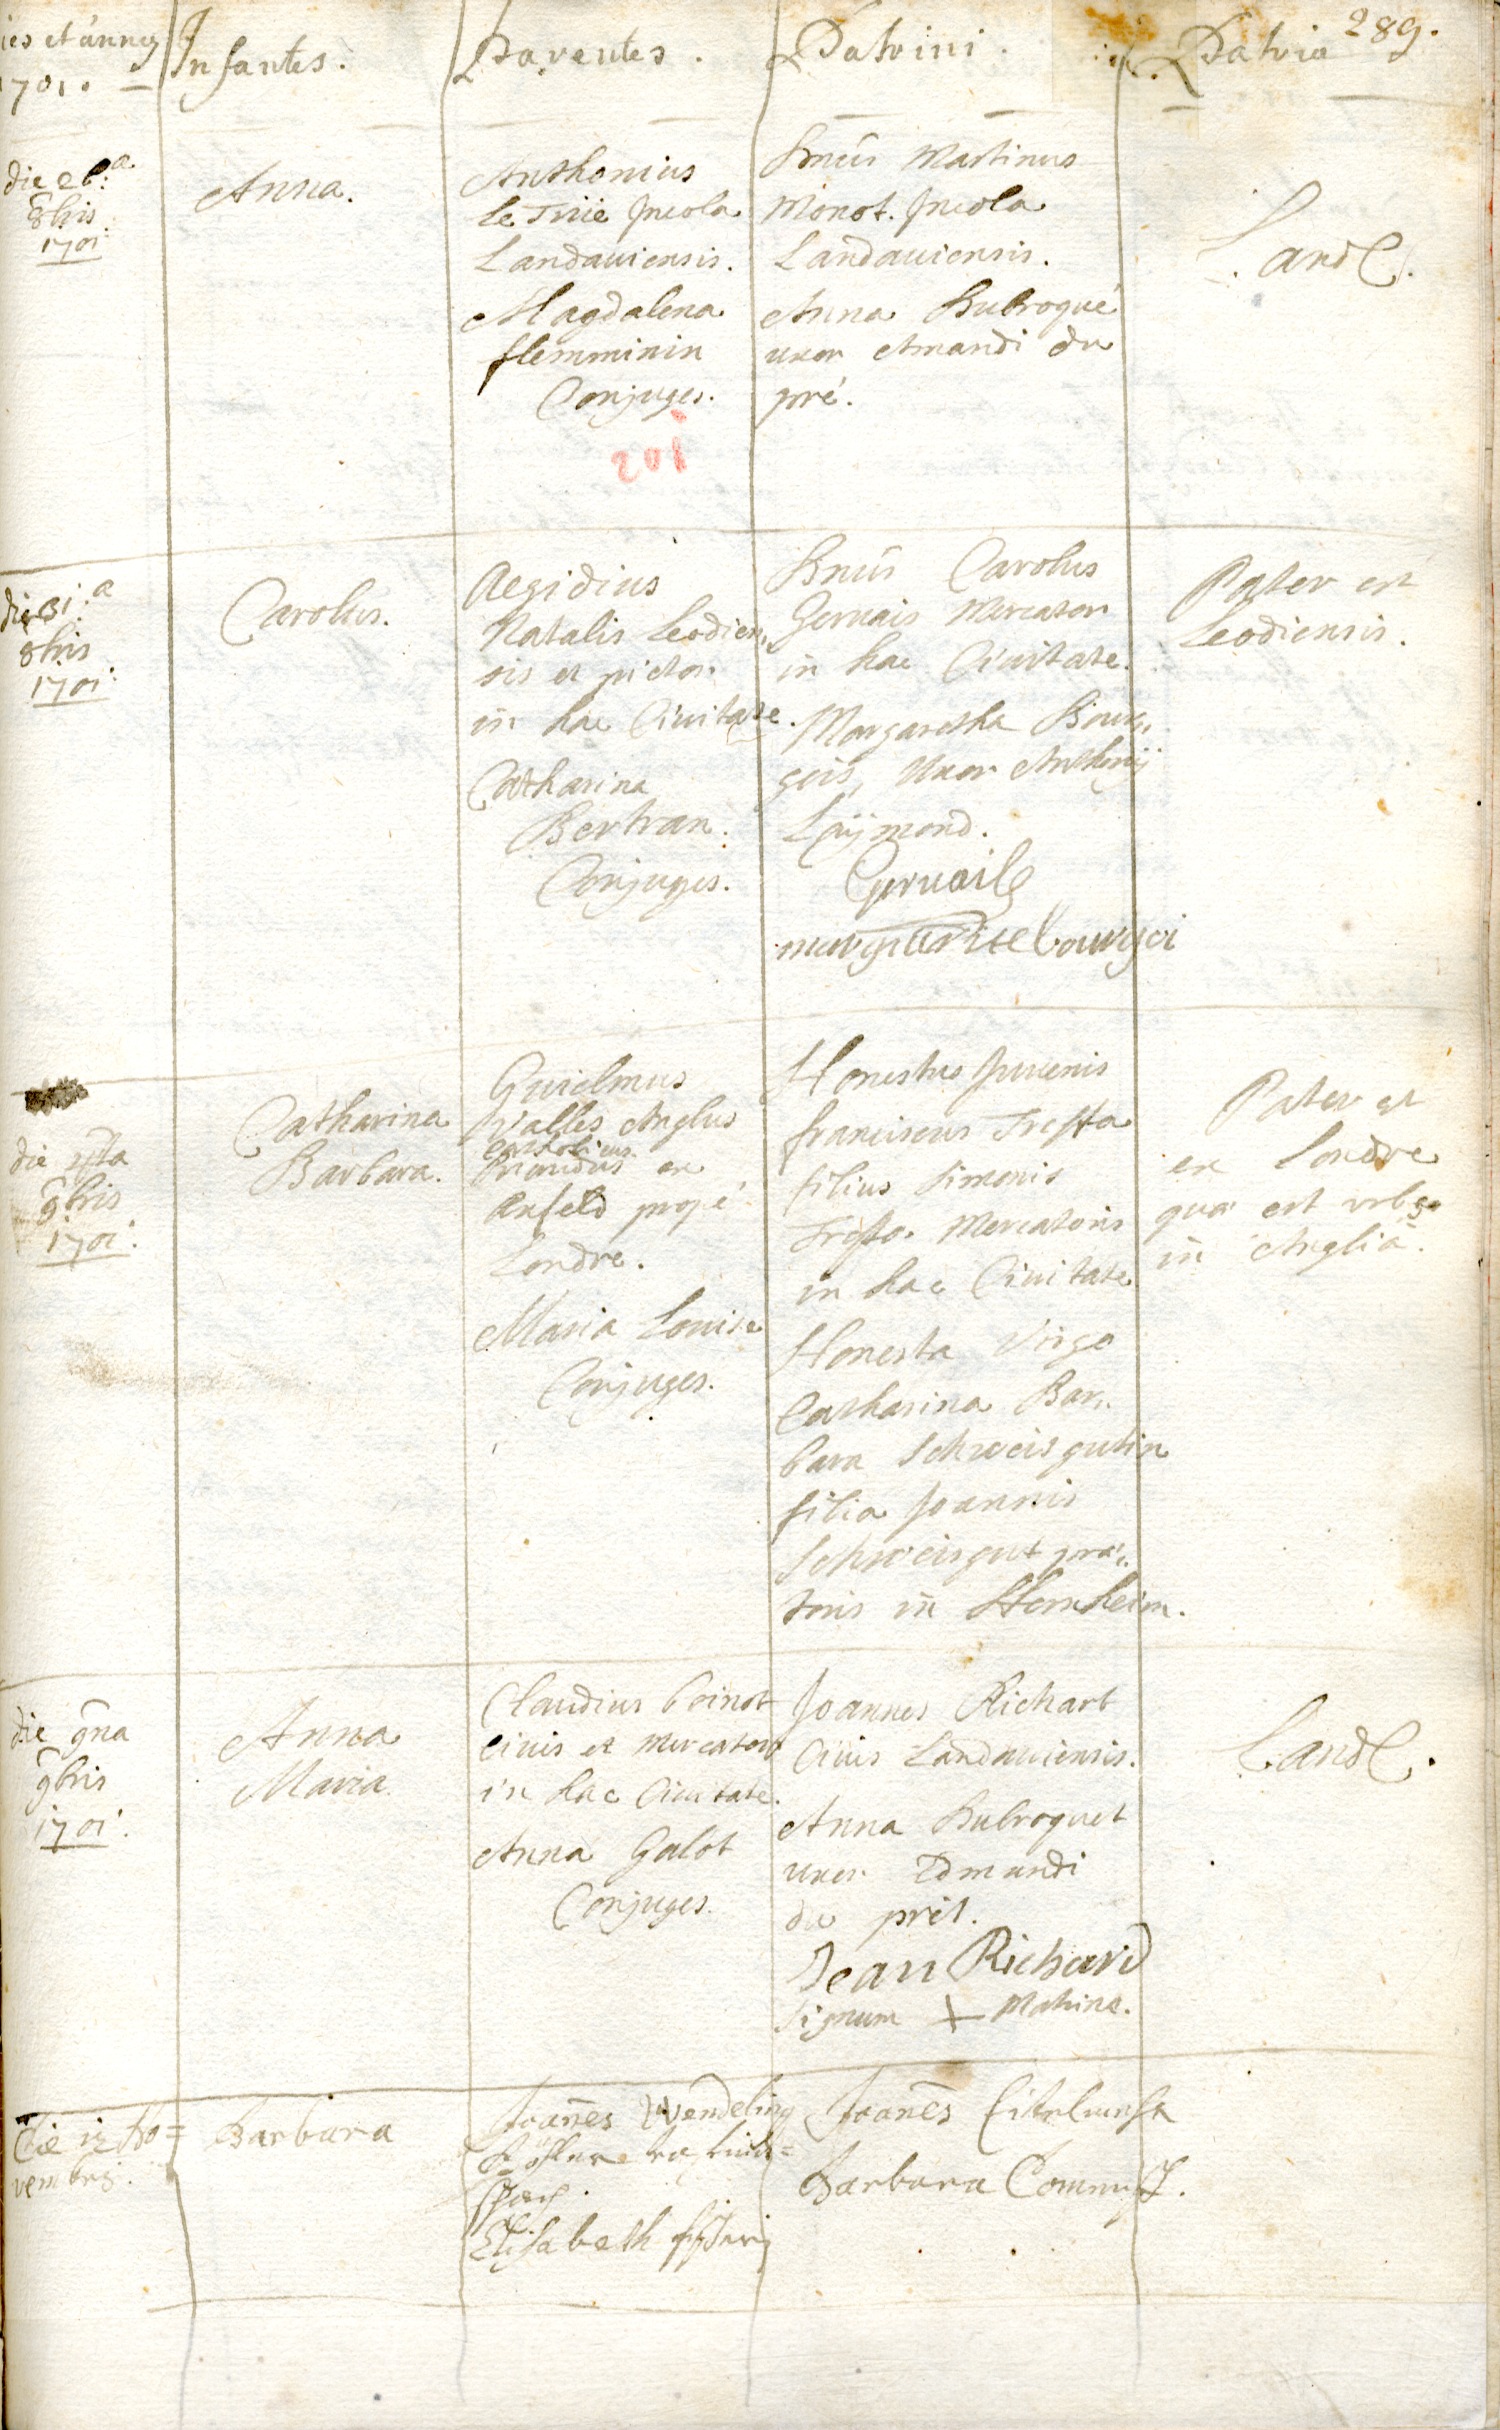 289.
ies et annus
1701.
Infantes.
Parentes.
Patrini.
Patria
die 26.a
8bris
1701.
Anna.
Anthonius
le Trüe Incola
Landauiensis.
Magdalena
flemminin
Conjuges.
201
Martinus
Monot. Incola
Landauiensis.
Anna Hubroqué
uxor Amandi du
pré.
Land
die 31.a
8bris
1701.
Carolus.
Aegidius
Natalis Leodien„
sis et pictor
in hac Ciuitate.
Catharina
Bertran.
Conjuges.
Carolus
Geruais Mercator
in hac Ciuitate.
Margaretha Bour„
gois, Uxor Anthonij
Laÿmond.
Geruais
marguerite bourgoi
Pater est
Leodiensis.
die
9bris
1701.
Catharina
Barbara.
Guielmus
Walles Anglus
Catholicus
ex
Axfeld propé
Londre.
Maria Louise
Conjuges.
Honestus Juuenis
franciscus Trefta
filius Simonis
Trefta Mercatoris
in hac Ciuitate
Honesta Virgo
Catharina Bar„
bara Schweisgutin
filia Joannis
Schweisgut præ„
toris in Hernheim.
Pater est
ex Londre
qua est urbs
in Angliâ.
die 9na
9bris
1701.
Anna
Maria.
Claudius boinot
Ciuis et Mercator
in hac Ciuitate.
Anna Galot
Conjuges.
Joannes Richart
Ciuis Landauiensis.
Anna Hubroquet
uxor Edmundi
du prèt.
Jean Richard
Signum + Matrinæ.
Land
Die 12 No=
vembris.
Barbara
Joañes Wendeling
Elisabeth
Joañes
Barbara